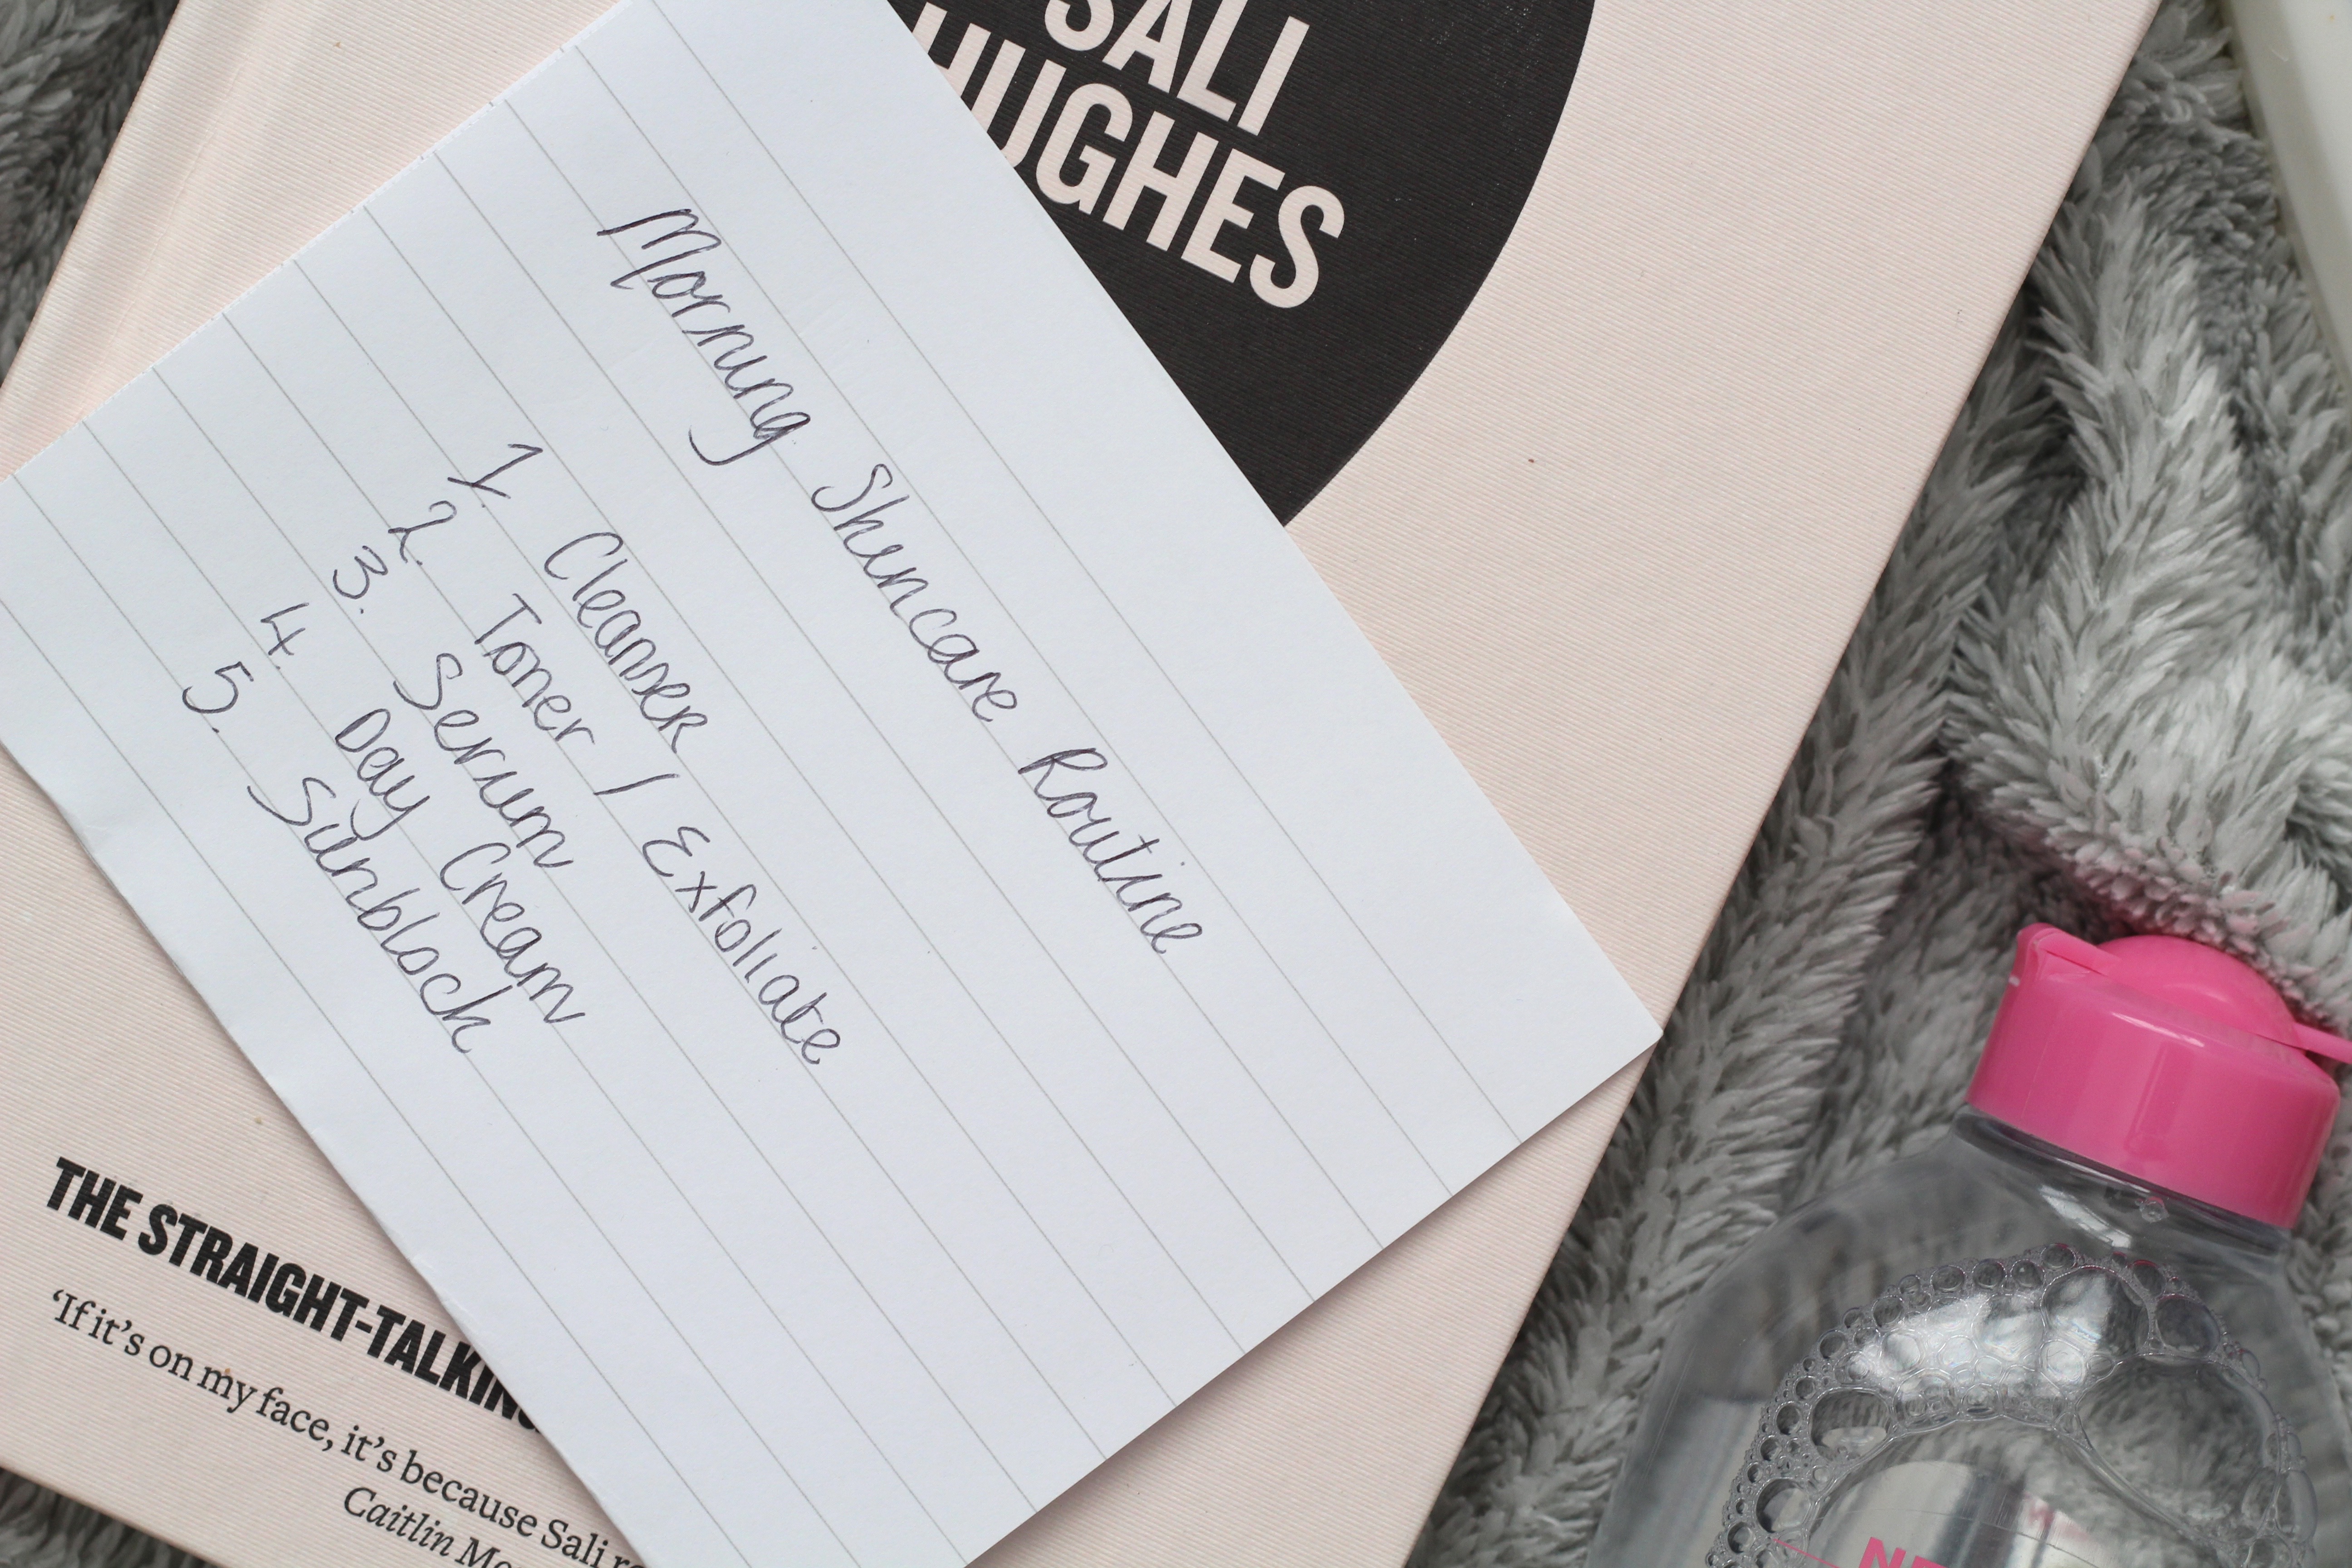 SALI
HUGHES
Morning Skincare Routine
1. Cleanser
2. Toner / Exfoliate
3. Serum
4. Day Cream
5. Sunblock
THE STRAIGHT-TALKING
‘If it’s on my face, it’s because Sali
Caitlin